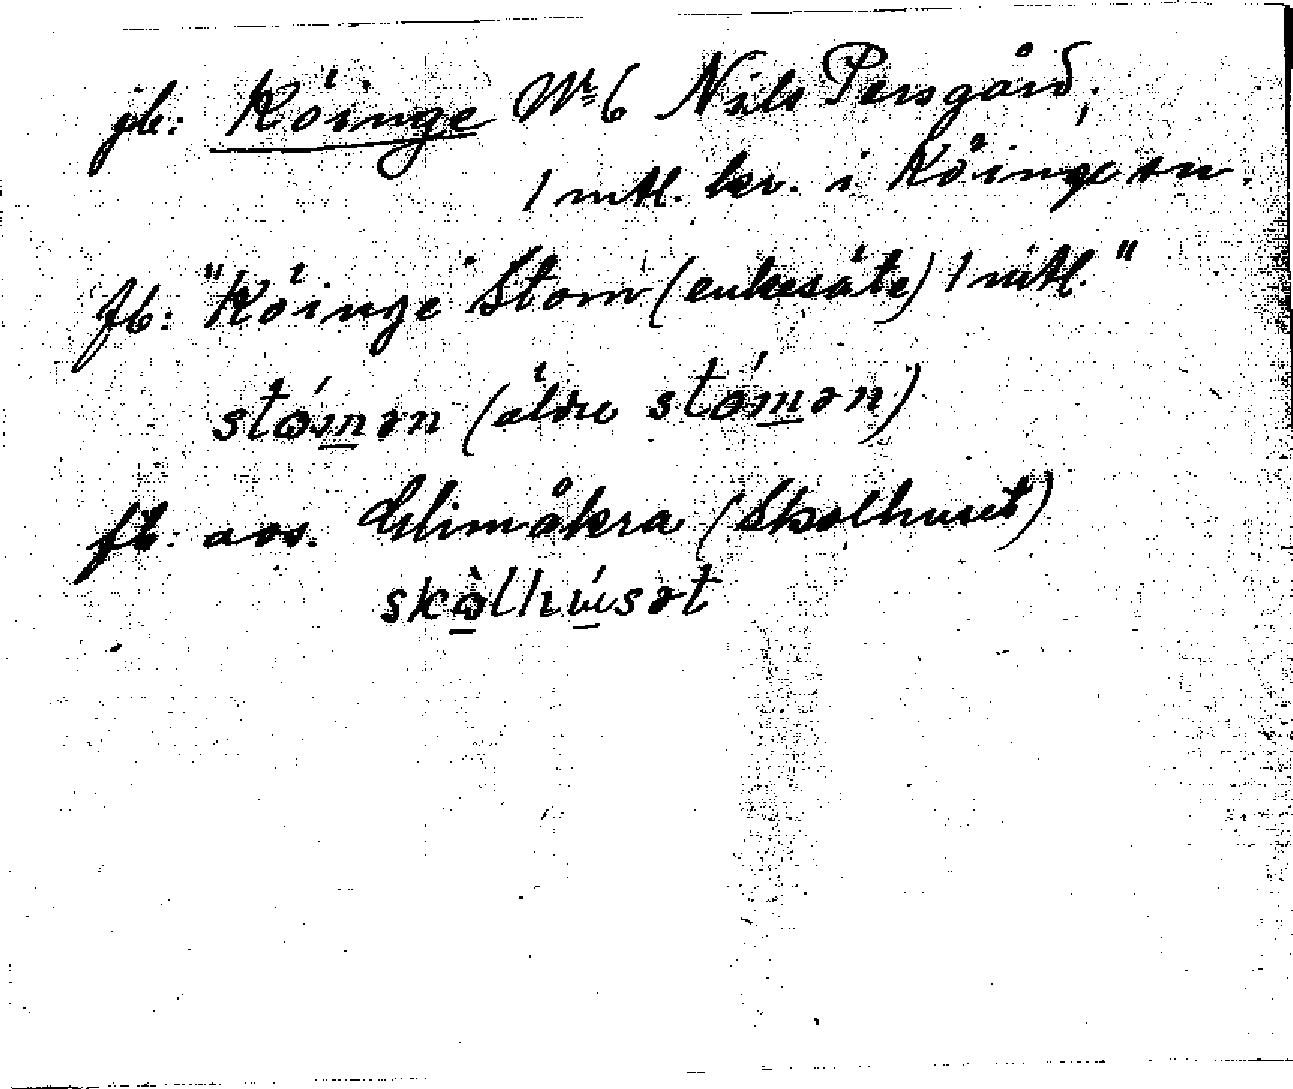 jb: Köinge No 6 Nils Persgård,
1 mtl. kr. i Köinge sn.
fb: "Köinge Stom (enkesäte) 1 mtl."
stómən (äldre stómən)
fb: avs. Glimåkra (Skolhuset)
skòlhúsət